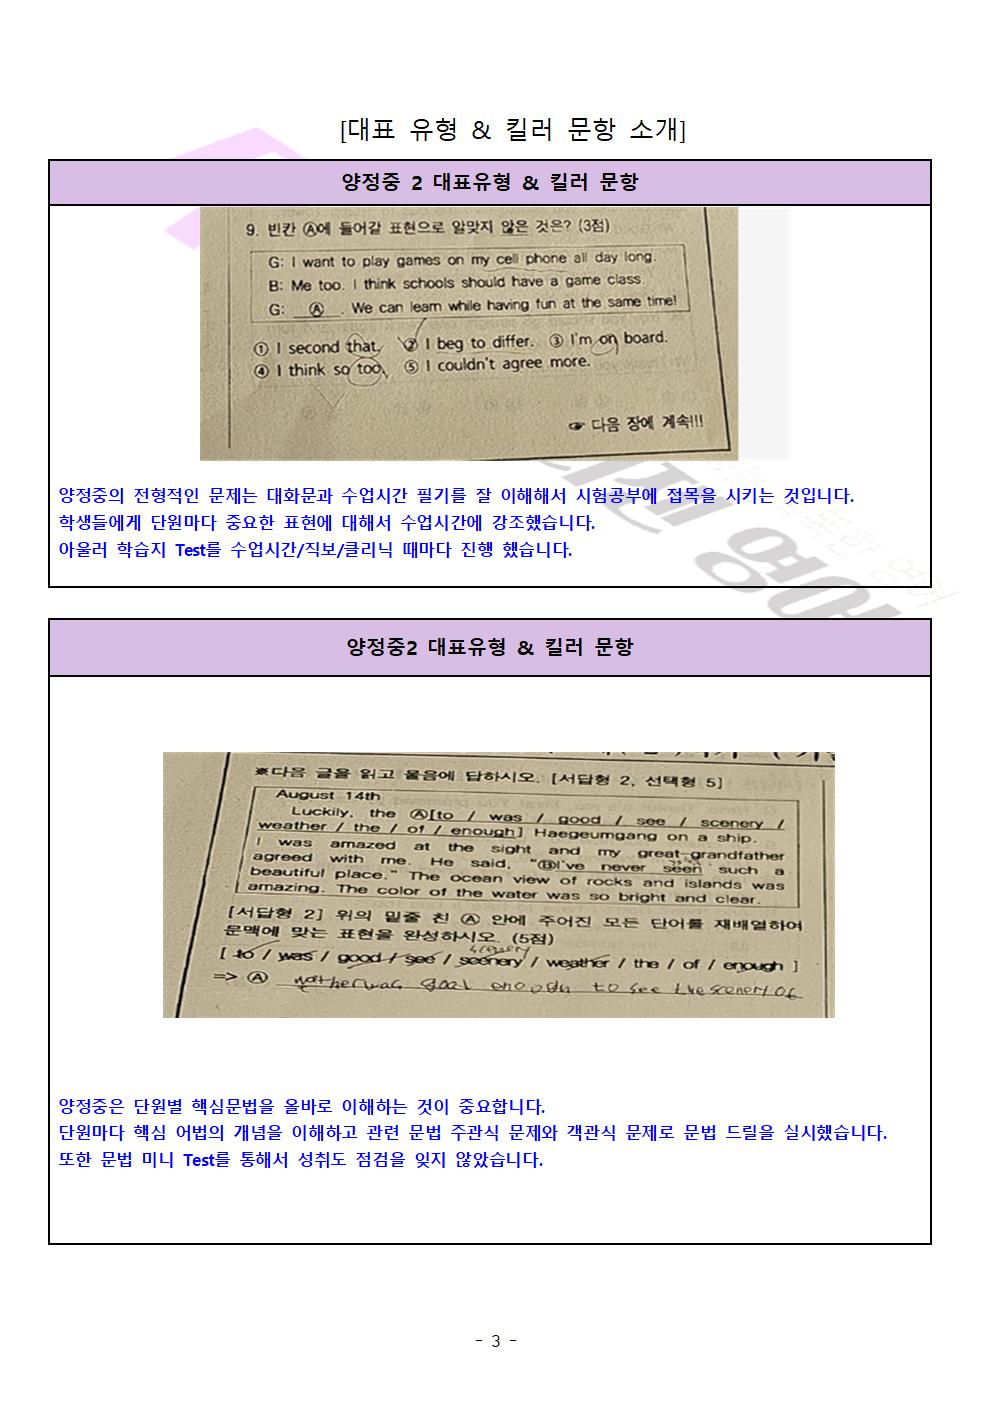 [대표 유형 & 킬러 문항 소개]
양정중 2 대표유형 & 킬러 문항
9. 빈칸 Ⓐ에 들어갈 표현으로 알맞지 않은 것은? (3점)
G: I want to play games on my cell phone all day long.
B: Me too. I think schools should have a game class.
G: Ⓐ . We can learn while having fun at the same time!
① I second that. ② I beg to differ. ③ I'm on board.
④ I think so too. ⑤ I couldn't agree more.
☞ 다음 장에 계속!!!
양정중의 전형적인 문제는 대화문과 수업시간 필기를 잘 이해해서 시험공부에 접목을 시키는 것입니다.
학생들에게 단원마다 중요한 표현에 대해서 수업시간에 강조했습니다.
아울러 학습지 Test를 수업시간/직보/클리닉 때마다 진행 했습니다.
영어
양정중2 대표유형 & 킬러 문항
※다음 글을 읽고 물음에 답하시오. [서답형 2, 선택형 5]
August 14th
Luckily, the Ⓐ[to / was / good / see / scenery /
weather / the / of / enough] Haegeumgang on a ship.
I was amazed at the sight and my great-grandfather
agreed with me. He said, "ⒷI've never seen such a
beautiful place." The ocean view of rocks and islands was
amazing. The color of the water was so bright and clear.
[서답형 2] 위의 밑줄 친 Ⓐ 안에 주어진 모든 단어를 재배열하여
문맥에 맞는 표현을 완성하시오. (5점)
[ to / was / good / see / scenery / weather / the / of / enough ]
=> Ⓐ weather was good enough to see the scenery of
양정중은 단원별 핵심문법을 올바로 이해하는 것이 중요합니다.
단원마다 핵심 어법의 개념을 이해하고 관련 문법 주관식 문제와 객관식 문제로 문법 드릴을 실시했습니다.
또한 문법 미니 Test를 통해서 성취도 점검을 잊지 않았습니다.
- 3 -